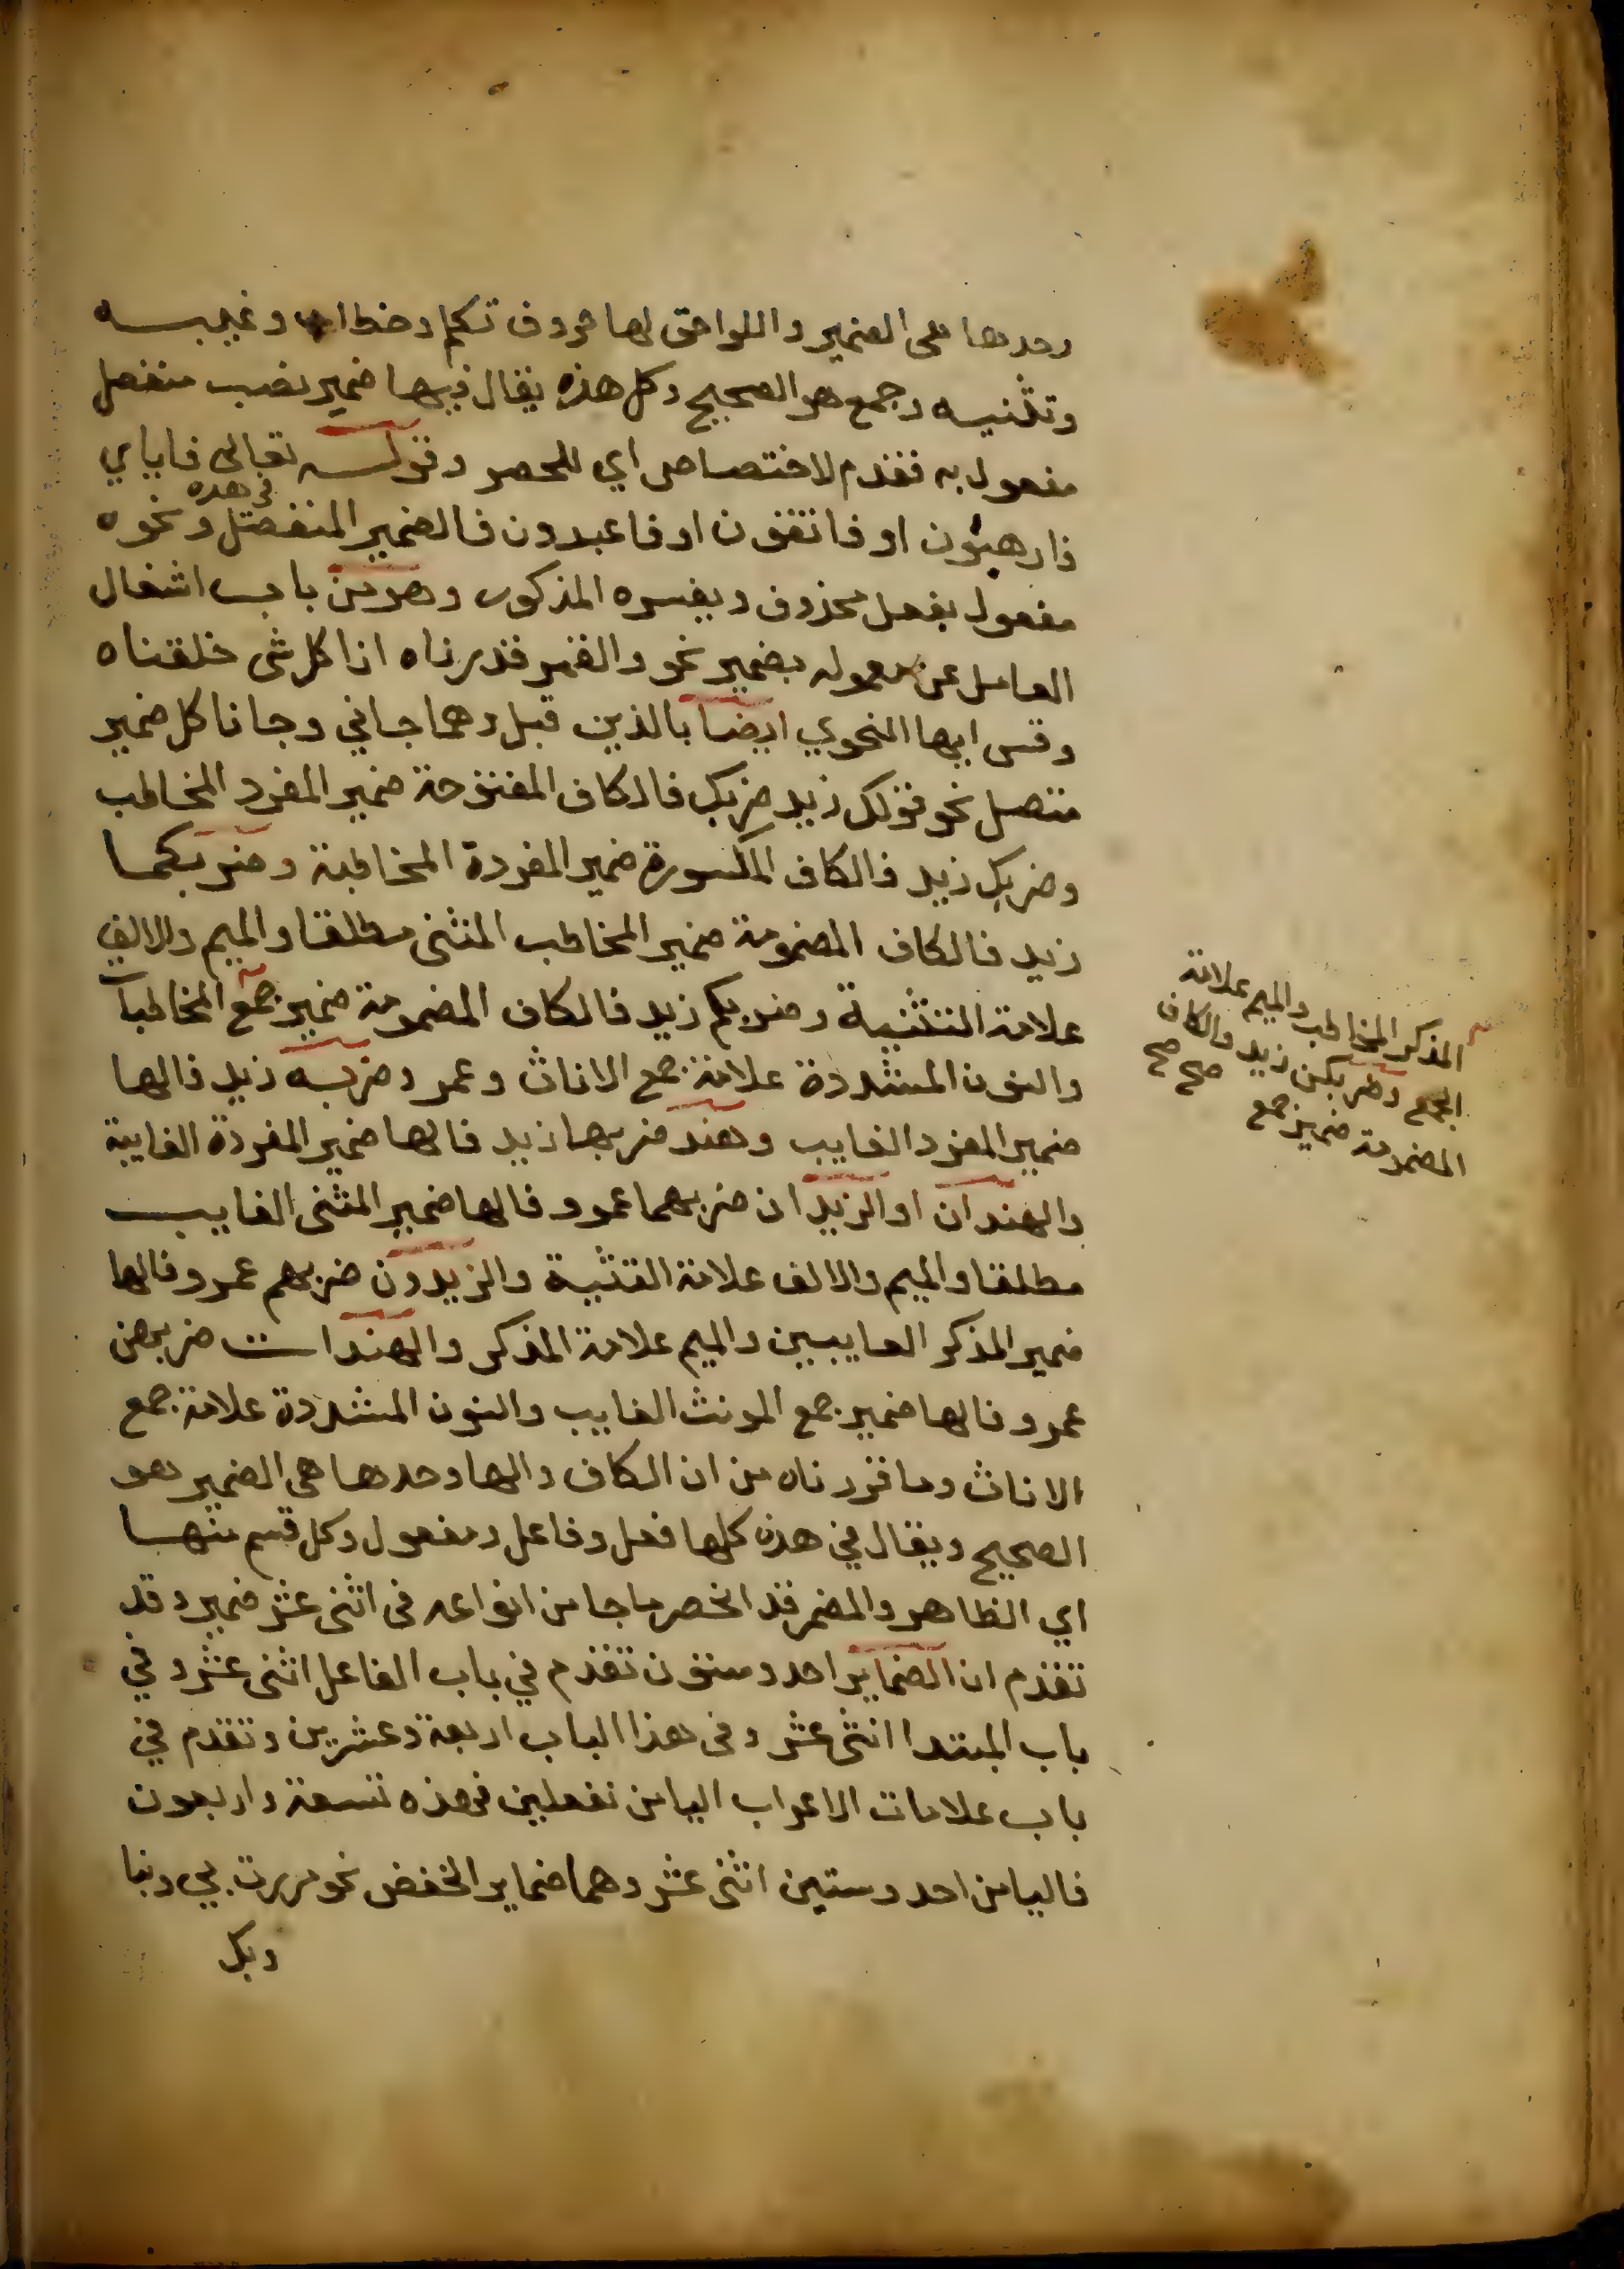 وحدها هى الضمير واللواحق لها حروف تكلم وخطاب وغيبـه
وتثنيـه وجمع هو الصحيح وكل هذه يقال فيها ضمير نصب منفصل
مفعول به فقدم لاختصاص اي للحصر وقولـه تعالى فاياي
فارهبون او فاتقون او فاعبدون فالضمير المنفصل في هذه ونحوه
مفعول بفعل محذوف ويفسره المذكور وهو من باب اشغال
العامل عن معموله بضمير نحو والقمر قدرناه انا كل شى خلقناه
وقس ايها النحوي ايضا بالذين قبل وهما جاني وجانا كل ضمير
متصل نحو قولك زيد ضربك فالكاف المفتوحة ضمير المفرد المخاطب
وضربكِ زيد فالكاف المكسورة ضمير المفردة المخاطبة وضربكما
زيد فالكاف المضمومة ضمير المخاطب المثنى مطلقا والميم والالف
علامة التثنية وضربكم زيد فالكاف المضمومة ضمير جمع المخاطبات
والنون المشددة علامة جمع الاناث وعمرو ضربـه زيد فالها
ضمير المفرد الغايب وهند ضربها زيد فالها ضمير المفردة الغايبة
والهندان او الزيدان ضربهما عمرو فالها ضمير المثنى الغايب
مطلقا والميم والالف علامة التثنية والزيدون ضربهم عمرو فالها
ضمير المذكر الغايبين والميم علامة المذكر والهندات ضربهن
عمرو فالها ضمير جمع المونث الغايب والنون المشددة علامة جمع
الاناث وما قررناه من ان الكاف والها وحدها هى الضمير هو
الصحيح ويقال في هذه كلها فعل وفاعل ومفعول وكل قسم منها
اي الظاهر والمضمر قد انحصر ما جا من انواعه فى اثنى عشر ضمير وقد
تقدم ان الضماير احد وستون تقدم في باب الفاعل اثنى عشر وفي
باب المبتدا اثنى عشر وفى هذا الباب اربعة وعشرين وتقدم في
باب علامات الاعراب اليا من تفعلين فهذه تسعة واربعون
فالبا من احد وستين اثنى عشر وهما ضماير الخفض نحو مررت بي وبنا
وبك
المذكر المخاطب والميم علامة
الجمع وضربكن زيد فالكاف
المضمومة ضمير جمع صح صح